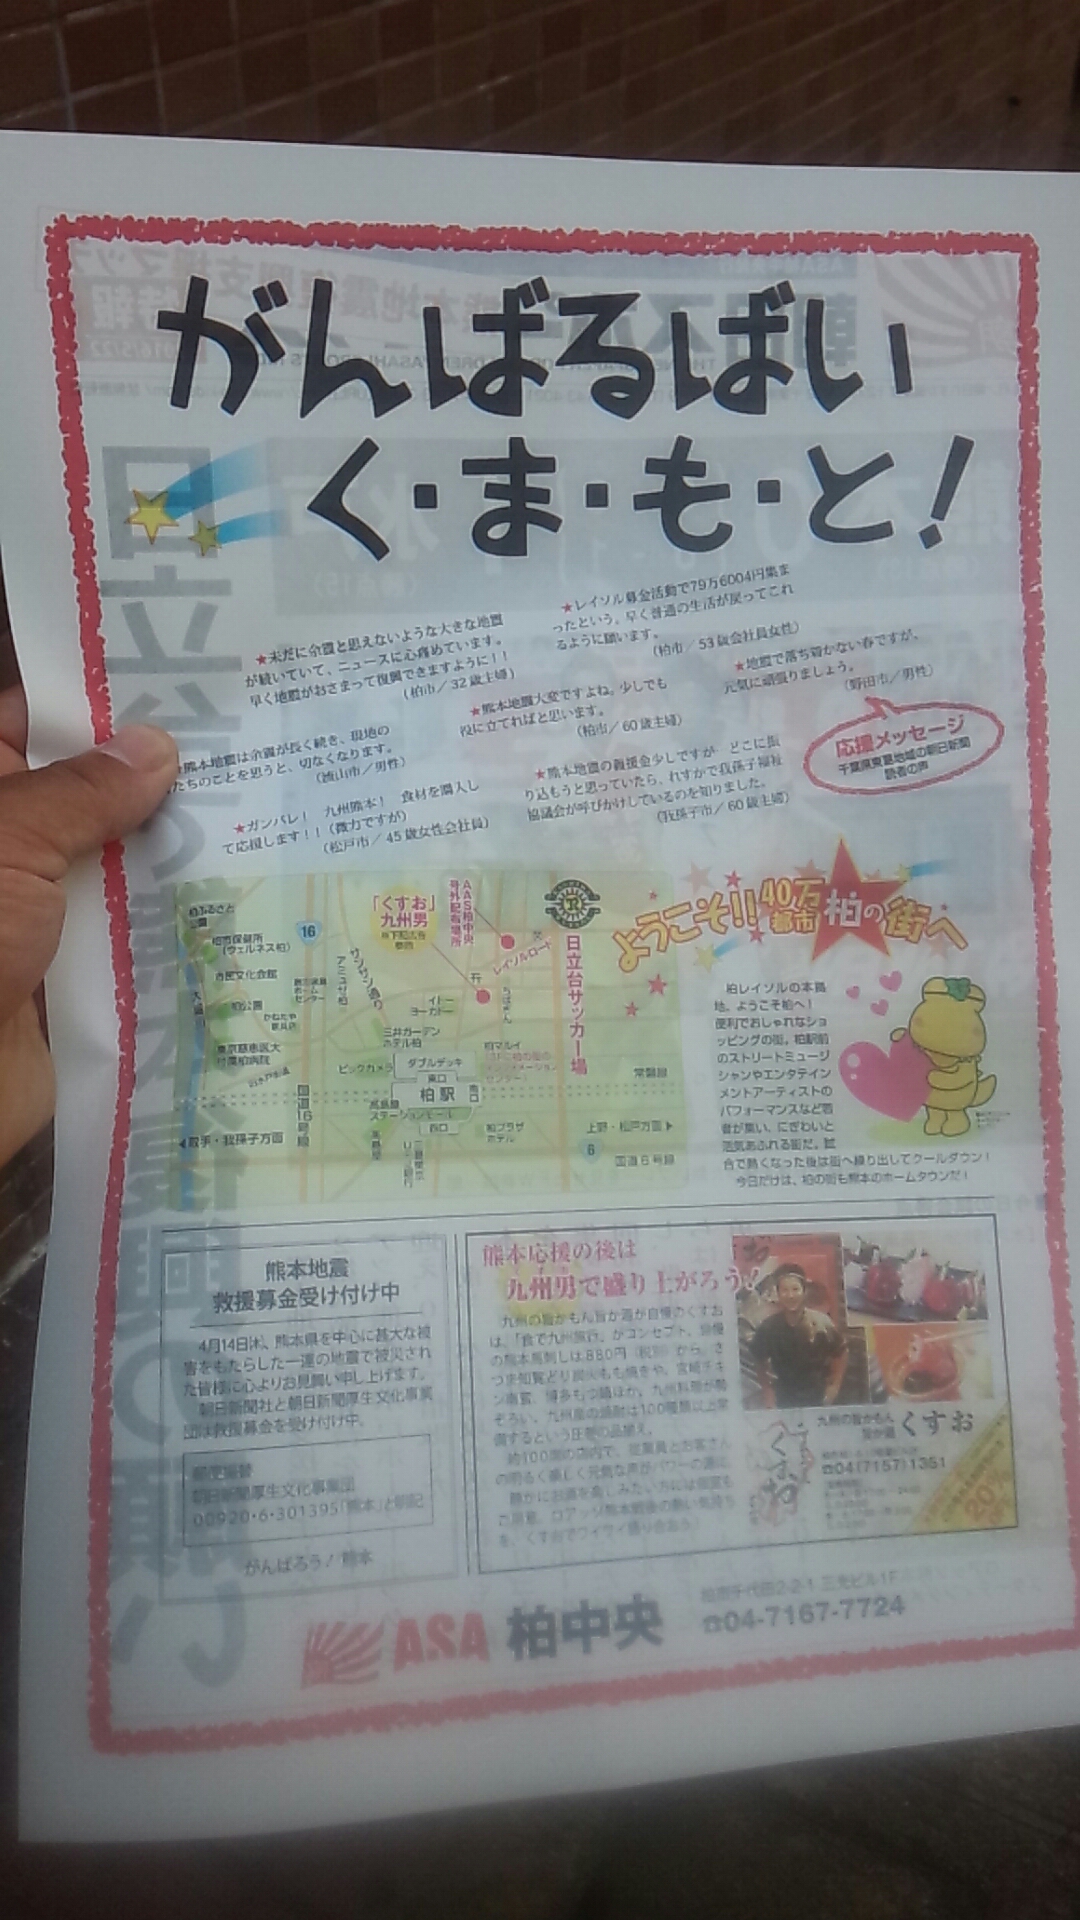 がんばるばい
く・ま・も・と!
★未だに余震と思えないような大きな地震
が続いていて、ニュースに心痛めています。
早く地震がおさまって復興できますように!!
(柏市/32歳主婦)
★レイソル募金活動で79万6004円集ま
ったという。早く普通の生活が戻ってこれ
るように願います。
(柏市/53歳会社員女性)
★地震で落ち着かない春ですが、
元気に頑張りましょう。
(野田市/男性)
★熊本地震大変ですよね。少しでも
役に立てればと思います。
(柏市/60歳主婦)
熊本地震は余震が長く続き、現地の
たちのことを思うと、切なくなります。
(流山市/男性)
★熊本地震の義援金少しですが どこに振
り込もうと思っていたら、れすかで我孫子福祉
協議会が呼びかけしているのを知りました。
(我孫子市/60歳主婦)
★ガンバレ! 九州熊本! 食材を購入し
て応援します!!(微力ですが)
(松戸市/45歳女性会社員)
応援メッセージ
千葉県東葛地域の朝日新聞
読者の声
ようこそ!!40万都市柏の街へ
柏レイソルの本拠
地。ようこそ柏へ!
便利でおしゃれなショ
ッピングの街。柏駅前
のストリートミュージ
シャンやエンタテイン
メントアーティストの
パフォーマンスなど若
者が集い、にぎわいと
活気あふれる街だ。試
合で熱くなった後は街へ繰り出してクールダウン!
今日だけは、柏の街も熊本のホームタウンだ!
柏ふるさと
公園
柏市保健所
(ウェルネス柏)
市民文化会館
柏公園
かねたや
家具店
東京慈恵医大
付属柏病院
旧水戸街道
16
国道16号線
サンサン通り
アミュゼ柏
「くすお」
九州男
※下記広告
参照
ASA柏中央
号外配布場所
レイソルロード
日立台サッカー場
イトー
ヨーカドー
三井ガーデン
ホテル柏
ビックカメラ
ダブルデッキ
東口
柏駅
南口
西口
高島屋
ステーションモール
高島屋
柏マルイ
柏プラザ
ホテル
常磐線
取手・我孫子方面
上野・松戸方面
6
国道6号線
熊本地震
救援募金受け付け中
4月14日(木)、熊本県を中心に甚大な被
害をもたらした一連の地震で被災され
た皆様に心よりお見舞い申し上げます。
朝日新聞社と朝日新聞厚生文化事業
団は救援募金を受け付け中。
郵便振替
朝日新聞厚生文化事業団
00920・6・301395「熊本」と明記
がんばろう!熊本
熊本応援の後は
九州男で盛り上がろう!
九州の旨かもん旨か酒が自慢のくすお
は、「食で九州旅行」がコンセプト。自慢
の熊本馬刺しは880円(税別)から。さ
つま知覧どり炭火もも焼きや、宮崎チキ
ン南蛮、博多もつ鍋ほか、九州料理が勢
ぞろい。九州産の焼酎は100種類以上常
備するという圧巻の品揃え。
約100席の店内で、従業員とお客さん
の明るく楽しく元気な声がパワーの源に
静かにお酒を楽しみたい方には個室も
ご用意。ロアッソ熊本戦後の熱い気持ち
を、くすおでワイワイ語り合おう。
九州の旨かもん
旨か酒
くすお
☎04(7157)1351
20%
ASA 柏中央
柏市千代田2-2-1 三光ビル1F
☎04-7167-7724